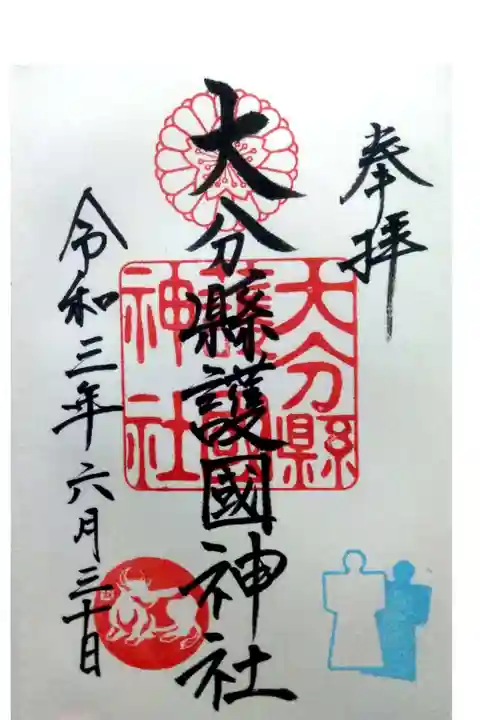 奉拝
大分縣護國神社
大分縣
護國
神社
令和三年六月三十日